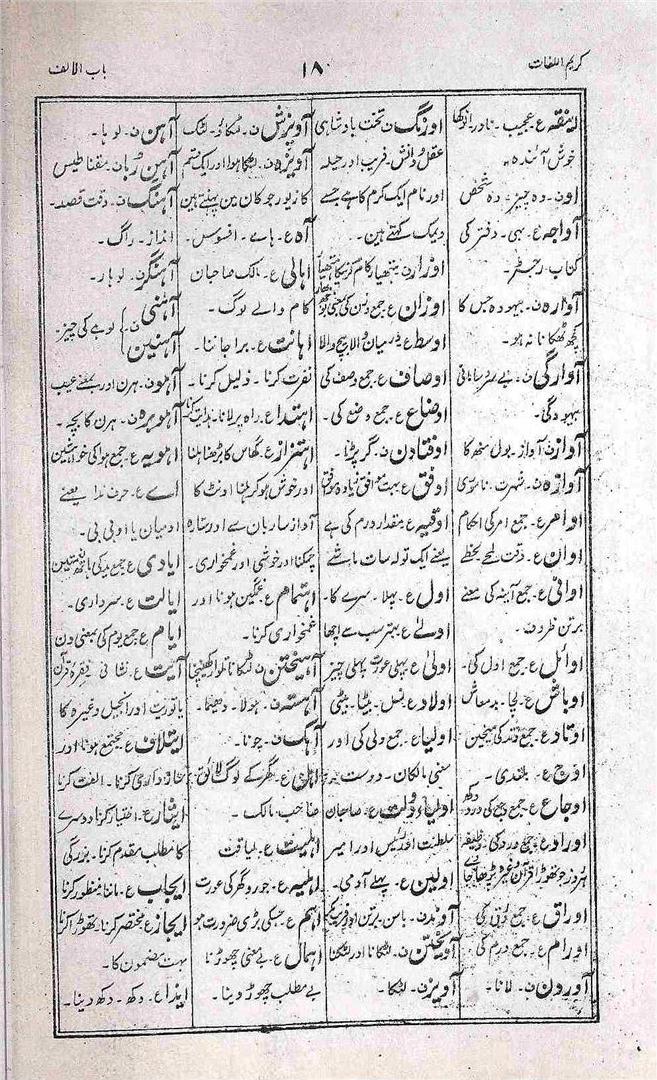 کریم اللغات
۱۸
باب الالف
انیقہ ع عجیب ۔ نادر انوکھا
خوش آئندہ ۔
اون ۔ وہ چیز ۔ وہ شخص
آواجہ ع ۔ بہی ۔ دفتر کی
کتاب رجسٹر ۔
آوارہ ن ۔ بیہودہ جس کا
کچھ ٹھکانا نہ ہو ۔
آوارگی ن ۔ بے سروسامانی
بیہودگی ۔
آواز ن آواز ۔ بول منھ کا
آوازہ ن ۔ شہرت ۔ ناموری
اوامر ع ۔ جمع امر کی احکام
اوان ع ۔ وقت لمحے لحظے
اوانی ع ۔ جمع آنیہ کی معنے
برتن ظروف ۔
اوائل ع ۔ جمع اول کی ۔
اوباش ع ۔ لچا ۔ بدمعاش
اوتاد ع ۔ جمع وتد کی میخیں
اوج ع ۔ بلندی ۔
اوجاع ع ۔ جمع وجع کی درد دکھ
اوراد ع ۔ جمع ورد کی ۔ وظیفہ
ہرروز جو تھوڑا قرآن وغیرہ پڑھا جائے
اوراق ع ۔ جمع ورق کی
اورام ع ۔ جمع ورم کی ۔
آوردن ن ۔ لانا ۔
اورنگ ن تخت بادشاہی
عقل و دانش ۔ فریب اور حیلہ
اور نام ایک کرم کا ہے جسے
دیمک کہتے ہیں ۔
اوزار ن ہتھیار کام کرنیکا ہتھیار
اوزان ع جمع وزن کی بمعنی تول
اوسط ع درمیان والا بیچ والا
اوصاف ع ۔ جمع وصف کی
اوضاع ع ۔ جمع وضع کی ۔
اوفتادن ن ۔ گر پڑنا ۔
اوفق ع بہت موافق زیادہ موافق
اوقیہ ع ۔ مقدار درم کی ہے
یعنے ایک تولہ سات ماشے
اول ع ۔ پہلا ۔ سرے کا ۔
اولے ع ۔ بہتر سب سے اچھا
اولیٰ ع ۔ پہلی عورت پہلی چیز
اولاد ع ۔ نسل ۔ بیٹا ۔ بیٹی
اولیا ع ۔ جمع ولی کی اور
بمعنی مالکان ۔ دوست
اولیاء دولت ع ۔ صاحبان
سلطنت اور رئیس اور امیر
اولین ع ۔ پہلے آدمی ۔
آوند ن ۔ باسن برتن
آویختن ن ۔ لٹکانا اور لٹکنا
آویز ن ۔ لٹکا ۔
آویزش ن ۔ لٹکاؤ ۔ لٹک
آویزہ ن ۔ لٹکا ہوا اور ایک قسم
کا زیور جو کان میں پہنتے ہیں
آہ ع ۔ ہاے ۔ افسوس ۔
اہالی ع ۔ مالک صاحبان
کام والے لوگ ۔
اہانت ع ۔ برا جاننا ۔
نفرت کرنا ۔ ذلیل کرنا ۔
اہتدا ع ۔ راہ پر لانا ۔ ہدایت کرنا
اہتزاز ع ۔ گھاس کا بڑھنا ہلنا
اور خوش ہو کر ہلنا اونٹ کا
آواز ساربان سے اور ستارہ
چمکنا اور خوشی اور غمخواری ۔
اہتمام ع ۔ غمگین ہونا اور
غمخواری کرنا ۔
آہیختن ن لٹکانا تلوار کھینچنا
آہستہ ن ۔ ہولا ۔ دھیما ۔
آہک ن ۔ چونا ۔
اہل ع ۔ گھر کے لوگ لائق
صاحب مالک ۔
اہلیت ع ۔ لیاقت
اہلیہ ع ۔ جورو گھر کی عورت
اہم ع ۔ جسکی بڑی ضرورت ہو
اہمال ع ۔ بے معنی چھوڑنا
بے مطلب چھوڑ دینا ۔
آہن ن ۔ لوہا ۔
آہن ربا ن ۔ مقناطیس
آہنگ ن ۔ وقت قصد ۔
انداز ۔ راگ ۔
آہنگر ن ۔ لوہار ۔
آہنی
آہنین } ن ۔ لوہے کی چیز ۔
آہو ن ۔ ہرن اور بمعنے عیب
آہوبرہ ن ۔ ہرن کا بچہ ۔
اہویہ ع ۔ جمع ہوا کی خواہشیں
اے ع ۔ حرف ندا یعنے
او میاں یا او بی بی ۔
ایادی ع جمع ید کی ہاتھ نعمتیں
ایالت ع ۔ سرداری ۔
ایام ع ۔ جمع یوم کی بمعنی دن
آیت ع ۔ نشانی فقرہ قرآن
یا توریت اور انجیل وغیرہ کا
ایتلاف ع ۔ مجتمع ہونا اور
سازواری کرنا ۔ الفت کرنا
ایثار ع ۔ اختیار کرنا دوسرے
کا مطلب مقدم کرنا ۔ بزرگی
ایجاب ع ۔ ماننا منظور کرنا
ایجاز ع مختصر کرنا ۔ تھوڑا کرنا
بہت مضمون کا ۔
ایذا ع ۔ دکھ ۔ دکھ دینا ۔